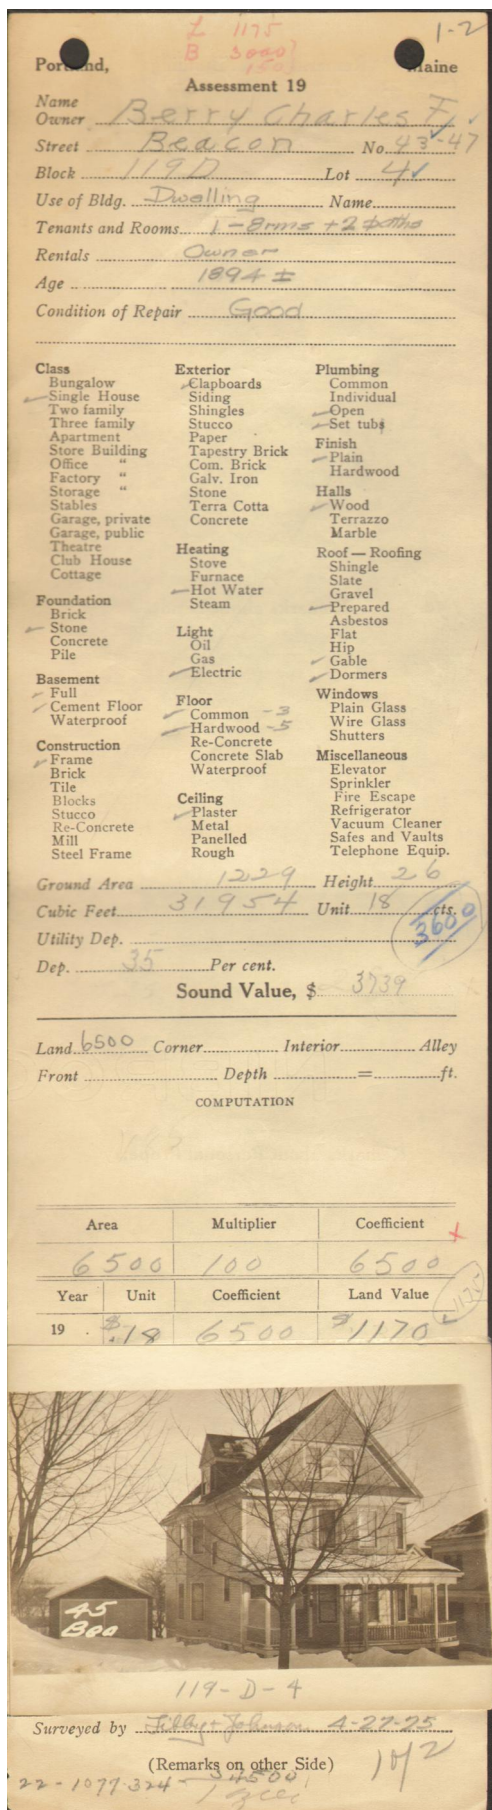 L 1175
B 3000
150
1-2
Portland, Maine
Assessment 19
Name
Owner Berry Charles F.
Street Beacon No. 43-47
Block 119D Lot 4
Use of Bldg. Dwelling Name
Tenants and Rooms 1-8rms +2 baths
Rentals Owner
Age 1894 ±
Condition of Repair Good
Class
Bungalow
Single House
Two family
Three family
Apartment
Store Building
Office "
Factory "
Storage "
Stables
Garage, private
Garage, public
Theatre
Club House
Cottage
Foundation
Brick
Stone
Concrete
Pile
Basement
Full
Cement Floor
Waterproof
Construction
Frame
Brick
Tile
Blocks
Stucco
Re-Concrete
Mill
Steel Frame
Exterior
Clapboards
Siding
Shingles
Stucco
Paper
Tapestry Brick
Com. Brick
Galv. Iron
Stone
Terra Cotta
Concrete
Heating
Stove
Furnace
Hot Water
Steam
Light
Oil
Gas
Electric
Floor
Common - 3
Hardwood - 5
Re-Concrete
Concrete Slab
Waterproof
Ceiling
Plaster
Metal
Panelled
Rough
Plumbing
Common
Individual
Open
Set tubs
Finish
Plain
Hardwood
Halls
Wood
Terrazzo
Marble
Roof — Roofing
Shingle
Slate
Gravel
Prepared
Asbestos
Flat
Hip
Gable
Dormers
Windows
Plain Glass
Wire Glass
Shutters
Miscellaneous
Elevator
Sprinkler
Fire Escape
Refrigerator
Vacuum Cleaner
Safes and Vaults
Telephone Equip.
Ground Area 1229 Height 26
Cubic Feet 31954 Unit 18 cts.
3600
Utility Dep.
Dep. 35 Per cent.
Sound Value, $ 3739
Land 6500 Corner Interior Alley
Front Depth = ft.
COMPUTATION
Area Multiplier Coefficient
6500 100 6500
Year Unit Coefficient Land Value
1175
19 $.18 6500 $1170
45
Bea
119-D-4
Surveyed by Libby & Johnson 4-27-25
(Remarks on other Side)
1 of 2
22-1077-324- $4500